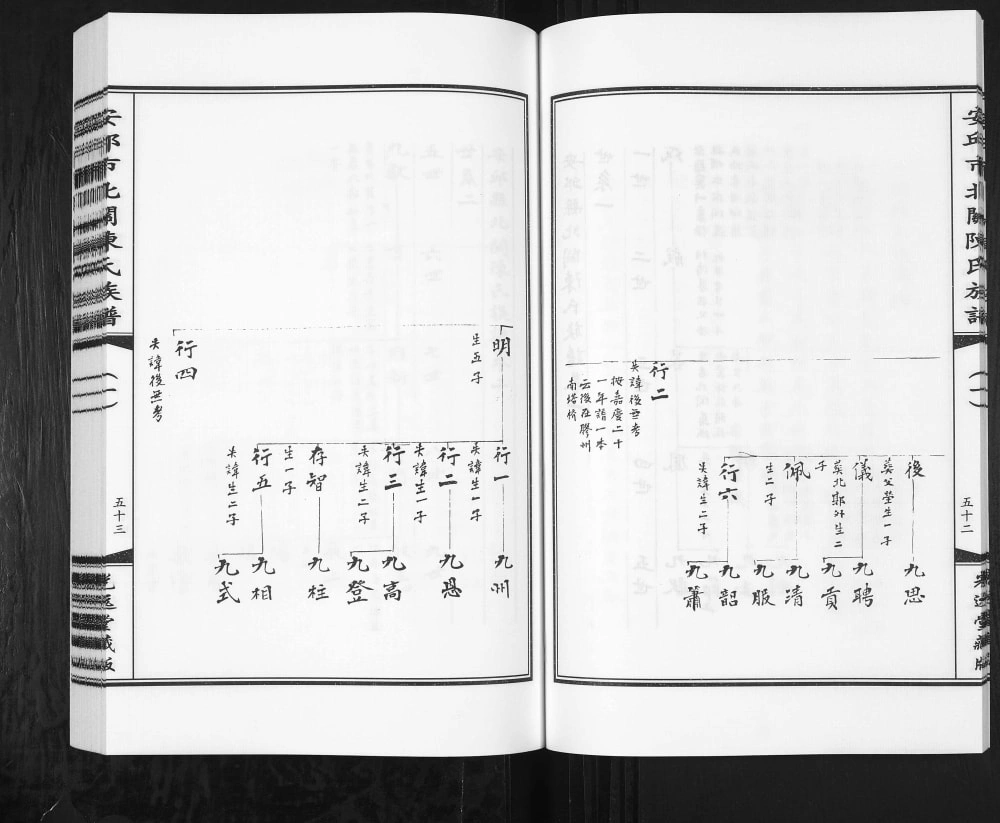 安丘市北關陳氏族譜
(一)
五十二
後
葬父塋生一子
九思
儀
葬北郭外生二
子
九聘
九貢
佩
生二子
九清
九服
行六
失諱生二子
九韶
九簫
行二
失諱後無考
按嘉慶二十
一年譜一本
云後在膠州
南塔橋
安邱市北關陳氏族譜
(一)
五十三
明
生五子
行一
失諱生一子
九州
行二
失諱生一子
九恩
行三
失諱生二子
九高
九登
存智
生一子
九柱
行五
失諱生二子
九相
九式
行四
失諱後無考